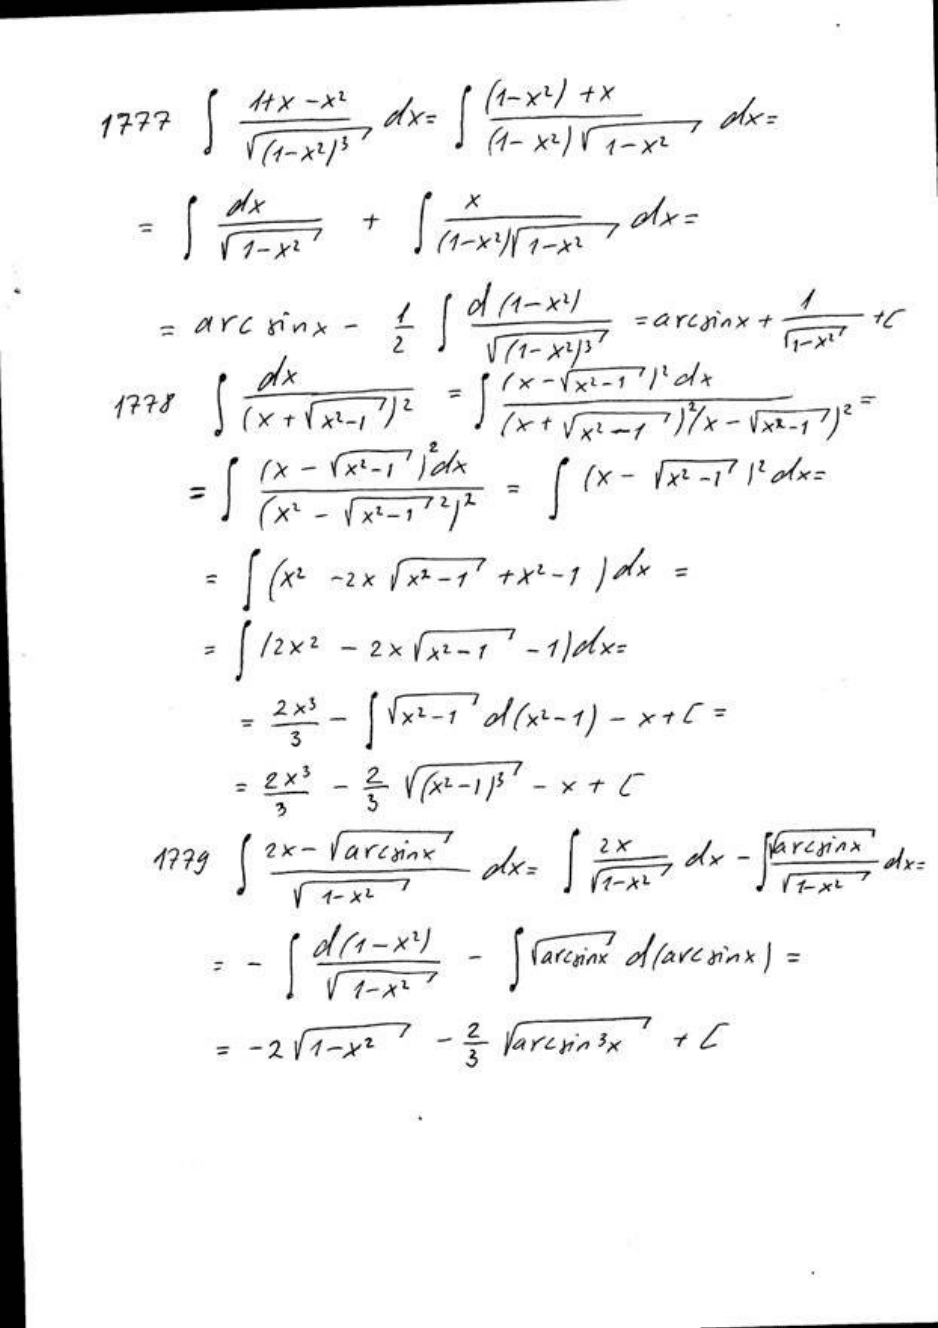 1777 ∫ (1+x-x²)/√((1-x²)³) dx = ∫ ((1-x²)+x)/((1-x²)√(1-x²)) dx =
= ∫ dx/√(1-x²) + ∫ x/((1-x²)√(1-x²)) dx =
= arcsinx - 1/2 ∫ d(1-x²)/√((1-x²)³) = arcsinx + 1/√(1-x²) + C
1778 ∫ dx/(x+√(x²-1))² = ∫ (x-√(x²-1))²dx/((x+√(x²-1))²(x-√(x²-1))²) =
= ∫ (x-√(x²-1))²dx/(x²-√(x²-1)²)² = ∫ (x-√(x²-1))²dx =
= ∫ (x²-2x√(x²-1)+x²-1)dx =
= ∫ (2x²-2x√(x²-1)-1)dx =
= 2x³/3 - ∫ √(x²-1) d(x²-1) - x + C =
= 2x³/3 - 2/3 √((x²-1)³) - x + C
1779 ∫ (2x-√(arcsinx))/√(1-x²) dx = ∫ 2x/√(1-x²) dx - ∫ √(arcsinx)/√(1-x²) dx =
= - ∫ d(1-x²)/√(1-x²) - ∫ √(arcsinx) d(arcsinx) =
= -2√(1-x²) - 2/3 √(arcsin³x) + C